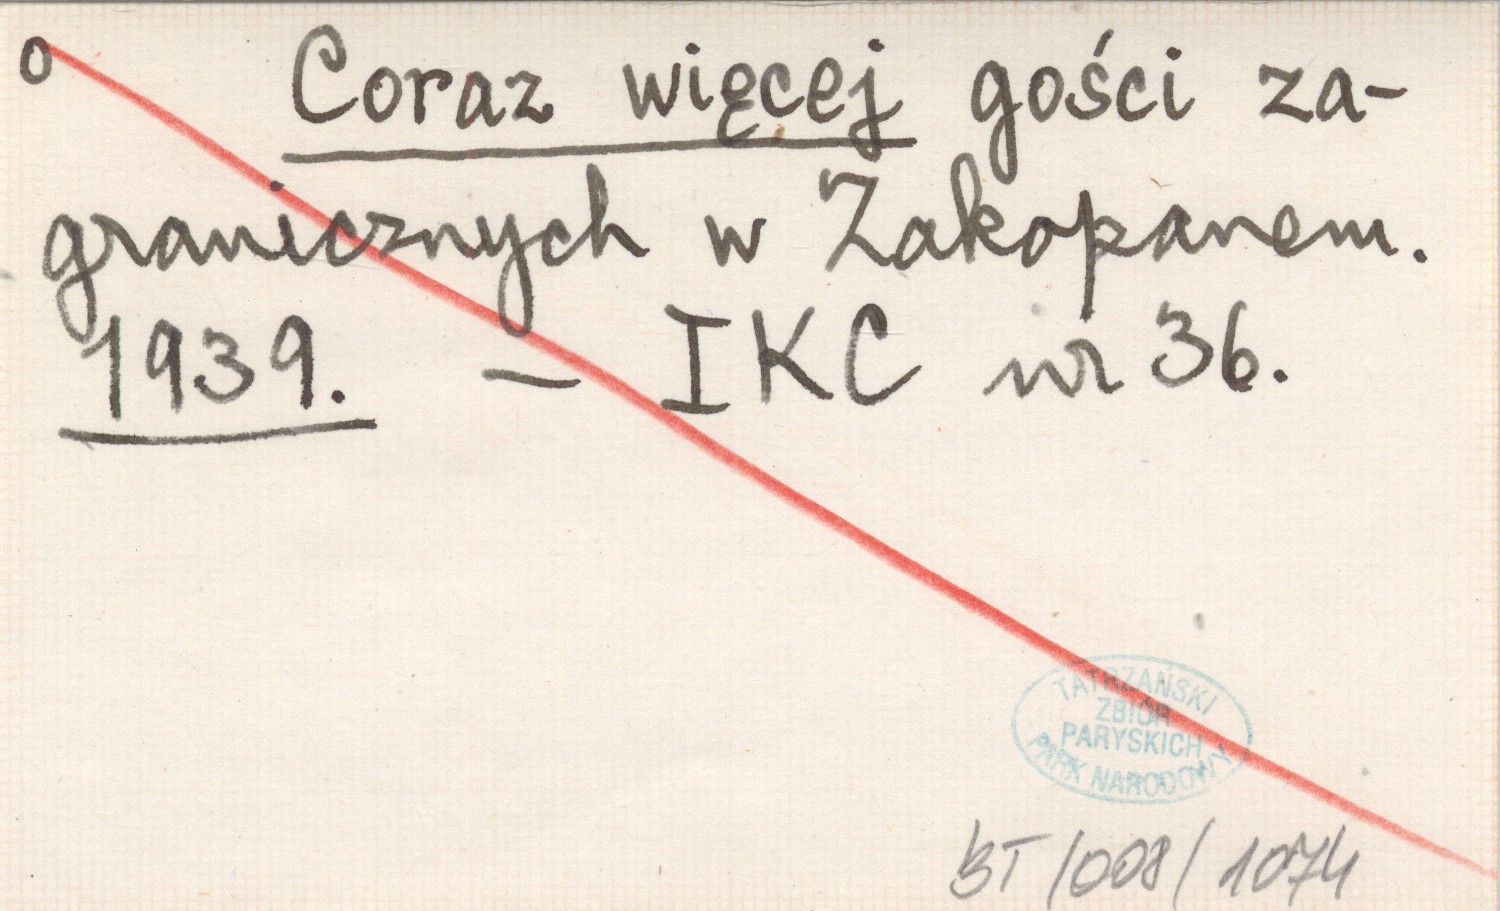 o
Coraz więcej gości za-
granicznych w Zakopanem.
1939. — IKC nr 36.
TATRZAŃSKI
ZBIÓR
PARYSKICH
PARK NARODOWY
BT/008/1074